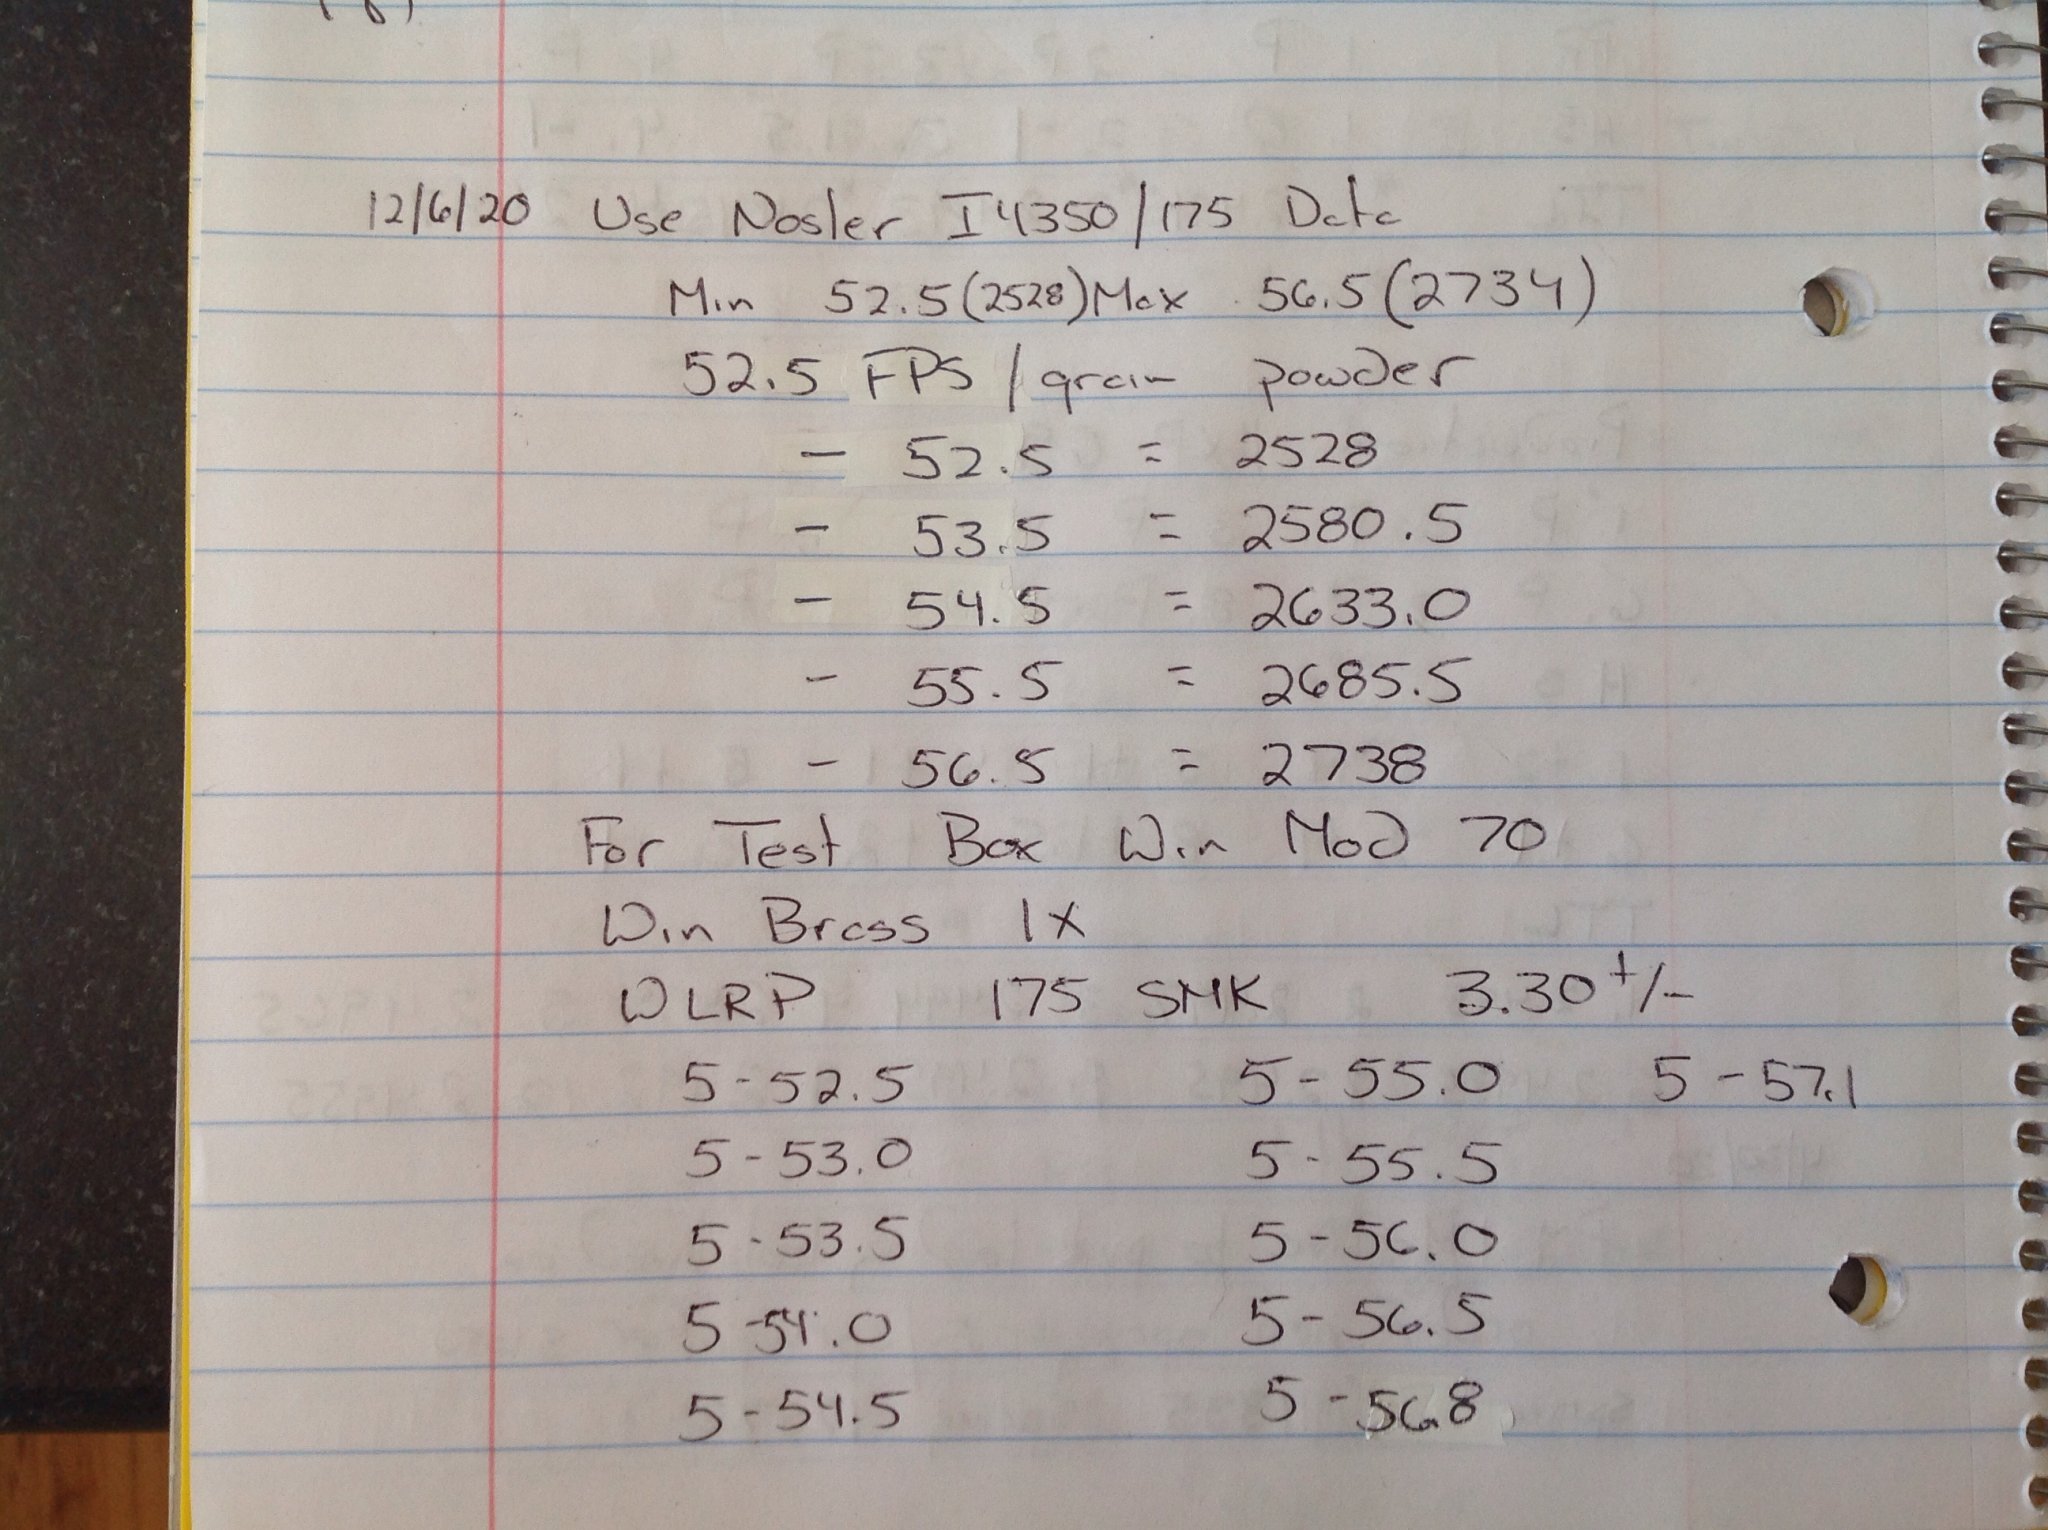 12/6/20 Use Nosler I4350/175 Data
Min 52.5(2528) Max 56.5(2734)
52.5 FPS/grain powder
- 52.5 = 2528
- 53.5 = 2580.5
- 54.5 = 2633.0
- 55.5 = 2685.5
- 56.5 = 2738
For Test Box Win Mod 70
Win Brass 1X
WLRP 175 SMK 3.30 +/-
5-52.5 5-55.0 5-57.1
5-53.0 5-55.5
5-53.5 5-56.0
5-54.0 5-56.5
5-54.5 5-56.8